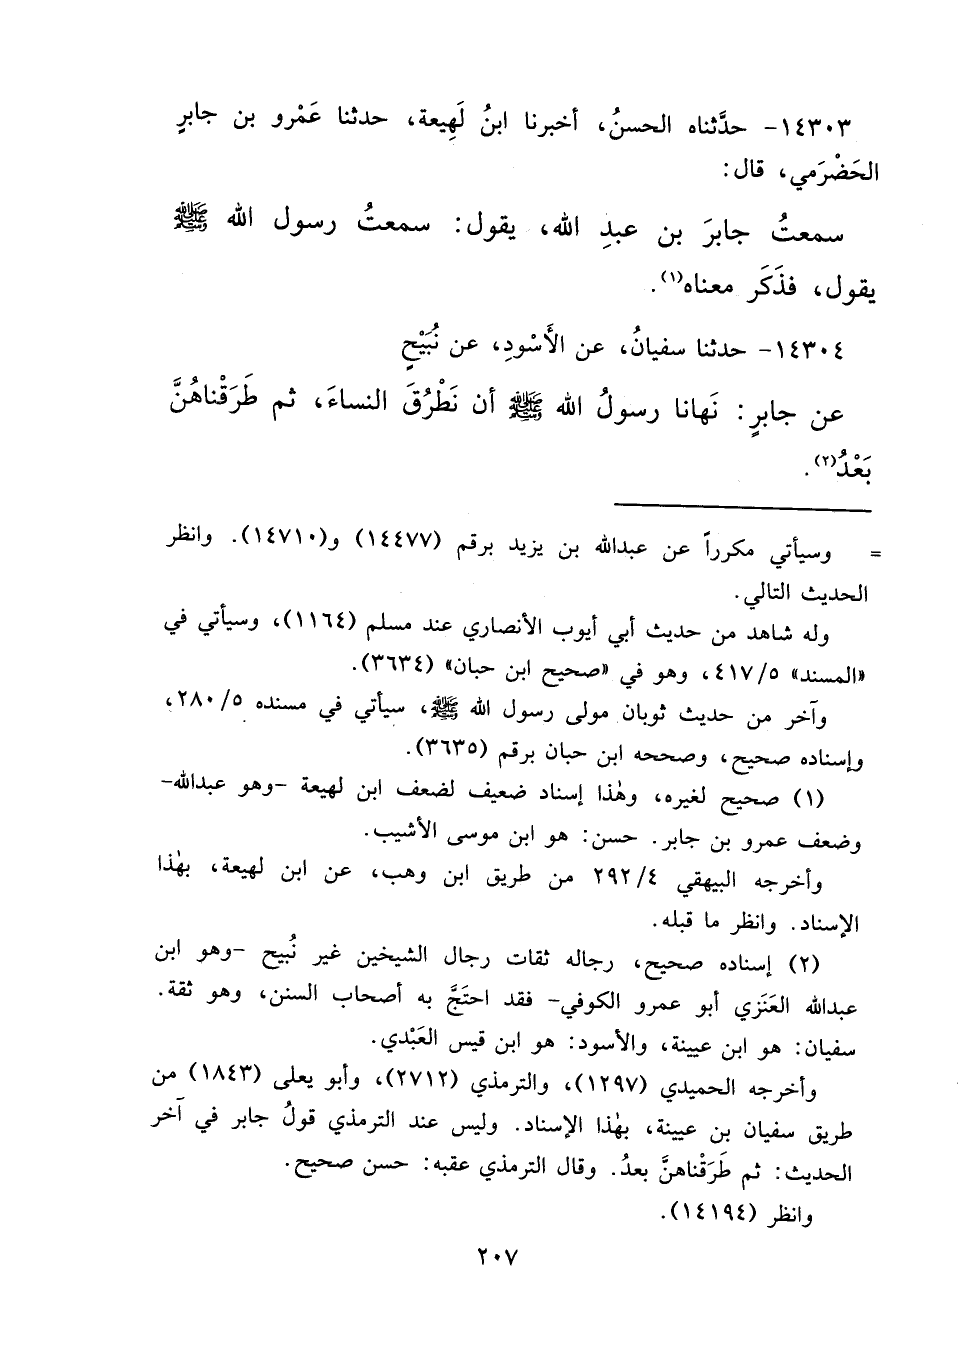 ١٤٣٠٣- حدَّثناه الحسنُ، أخبرنا ابنُ لَهِيعة، حدثنا عَمْرو بن جابرٍ
الحَضْرَمي، قال:
سمعتُ جابرَ بن عبدِ الله، يقول: سمعتُ رسول الله ﷺ
يقول، فذَكَر معناه(١).
١٤٣٠٤- حدثنا سفيانُ، عن الأَسْودِ، عن نُبَيْحٍ
عن جابرٍ: نَهانا رسولُ الله ﷺ أن نَطْرُقَ النساءَ، ثم طَرَقْناهُنَّ
بَعْدُ(٢).
= وسيأتي مكرراً عن عبدالله بن يزيد برقم (١٤٤٧٧) و(١٤٧١٠). وانظر
الحديث التالي.
وله شاهد من حديث أبي أيوب الأنصاري عند مسلم (١١٦٤)، وسيأتي في
«المسند» ٤١٧/٥، وهو في «صحيح ابن حبان» (٣٦٣٤).
وآخر من حديث ثوبان مولى رسول الله ﷺ، سيأتي في مسنده ٢٨٠/٥،
وإسناده صحيح، وصححه ابن حبان برقم (٣٦٣٥).
(١) صحيح لغيره، وهٰذا إسناد ضعيف لضعف ابن لهيعة -وهو عبدالله-
وضعف عمرو بن جابر. حسن: هو ابن موسى الأشيب.
وأخرجه البيهقي ٢٩٢/٤ من طريق ابن وهب، عن ابن لهيعة، بهٰذا
الإسناد. وانظر ما قبله.
(٢) إسناده صحيح، رجاله ثقات رجال الشيخين غير نُبيح -وهو ابن
عبدالله العَنَزي أبو عمرو الكوفي- فقد احتَجَّ به أصحاب السنن، وهو ثقة.
سفيان: هو ابن عيينة، والأسود: هو ابن قيس العَبْدي.
وأخرجه الحميدي (١٢٩٧)، والترمذي (٢٧١٢)، وأبو يعلى (١٨٤٣) من
طريق سفيان بن عيينة، بهٰذا الإسناد. وليس عند الترمذي قولُ جابر في آخر
الحديث: ثم طَرَقْناهنَّ بعدُ. وقال الترمذي عقبه: حسن صحيح.
وانظر (١٤١٩٤).
٢٠٧